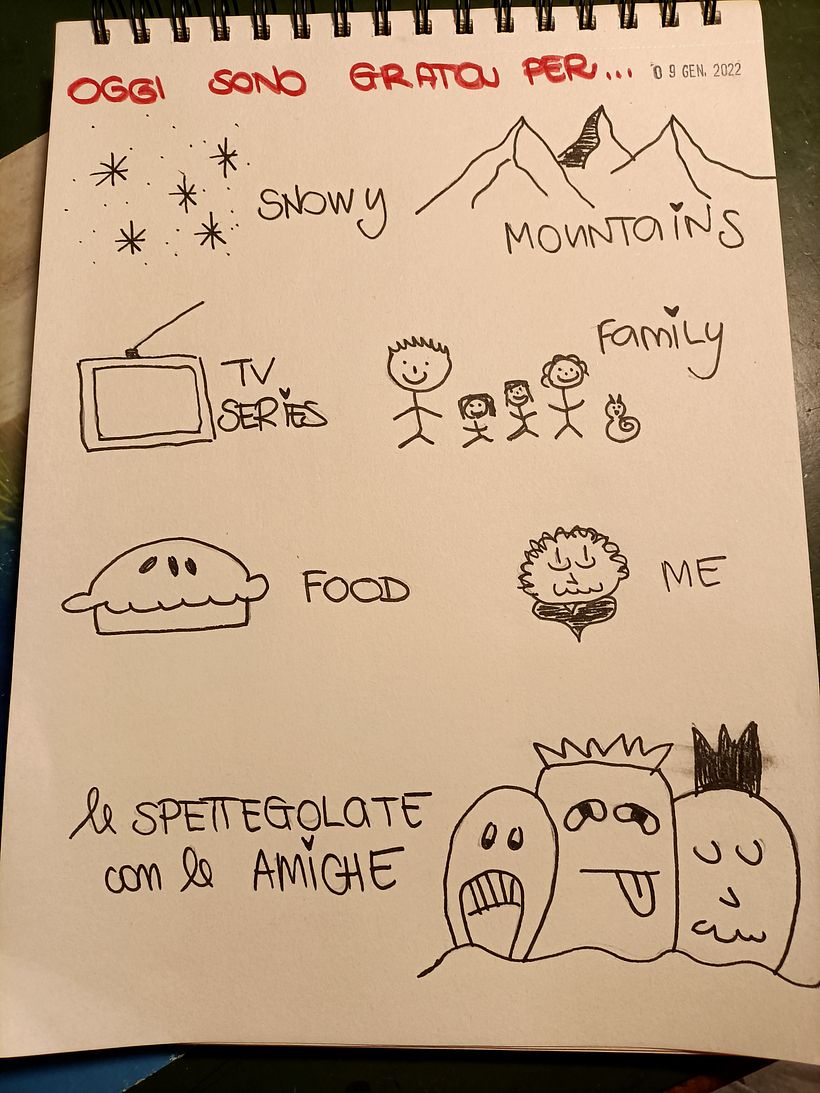 OGGI SONO GRATOU PER... 09 GEN. 2022
SNOWY
MOUNTAINS
TV
SERIES
FAMILY
FOOD
ME
le SPETTEGOLATE
con le AMICHE